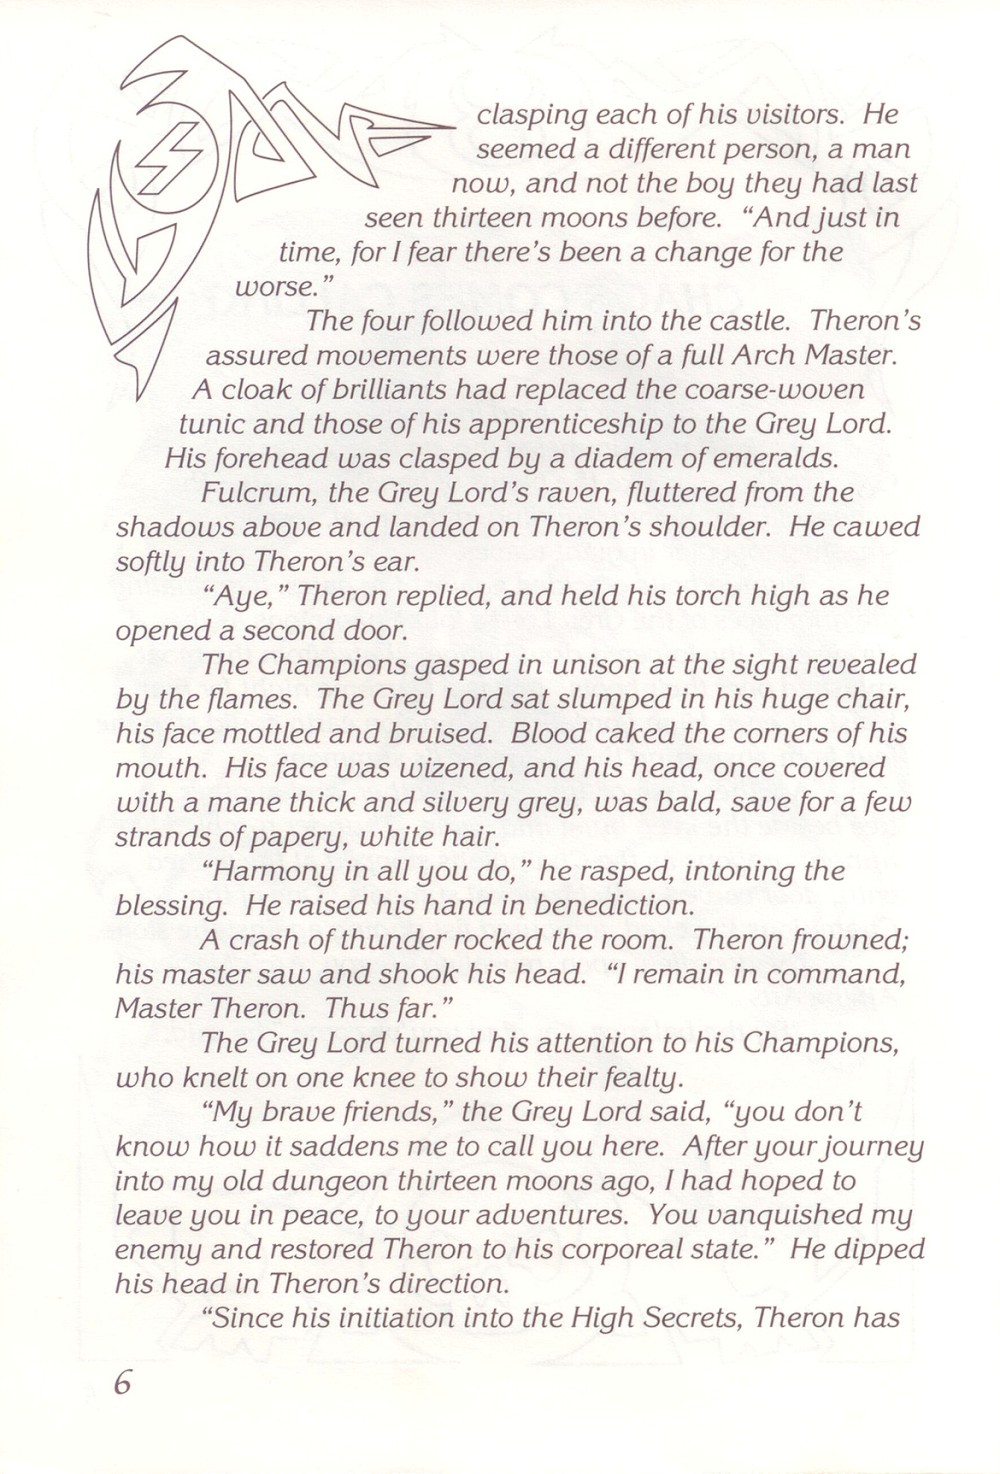 clasping each of his visitors. He
seemed a different person, a man
now, and not the boy they had last
seen thirteen moons before. “And just in
time, for I fear there’s been a change for the
worse.”
The four followed him into the castle. Theron’s
assured movements were those of a full Arch Master.
A cloak of brilliants had replaced the coarse-woven
tunic and those of his apprenticeship to the Grey Lord.
His forehead was clasped by a diadem of emeralds.
Fulcrum, the Grey Lord’s raven, fluttered from the
shadows above and landed on Theron’s shoulder. He cawed
softly into Theron’s ear.
“Aye,” Theron replied, and held his torch high as he
opened a second door.
The Champions gasped in unison at the sight revealed
by the flames. The Grey Lord sat slumped in his huge chair,
his face mottled and bruised. Blood caked the corners of his
mouth. His face was wizened, and his head, once covered
with a mane thick and silvery grey, was bald, save for a few
strands of papery, white hair.
“Harmony in all you do,” he rasped, intoning the
blessing. He raised his hand in benediction.
A crash of thunder rocked the room. Theron frowned;
his master saw and shook his head. “I remain in command,
Master Theron. Thus far.”
The Grey Lord turned his attention to his Champions,
who knelt on one knee to show their fealty.
“My brave friends,” the Grey Lord said, “you don’t
know how it saddens me to call you here. After your journey
into my old dungeon thirteen moons ago, I had hoped to
leave you in peace, to your adventures. You vanquished my
enemy and restored Theron to his corporeal state.” He dipped
his head in Theron’s direction.
“Since his initiation into the High Secrets, Theron has
6